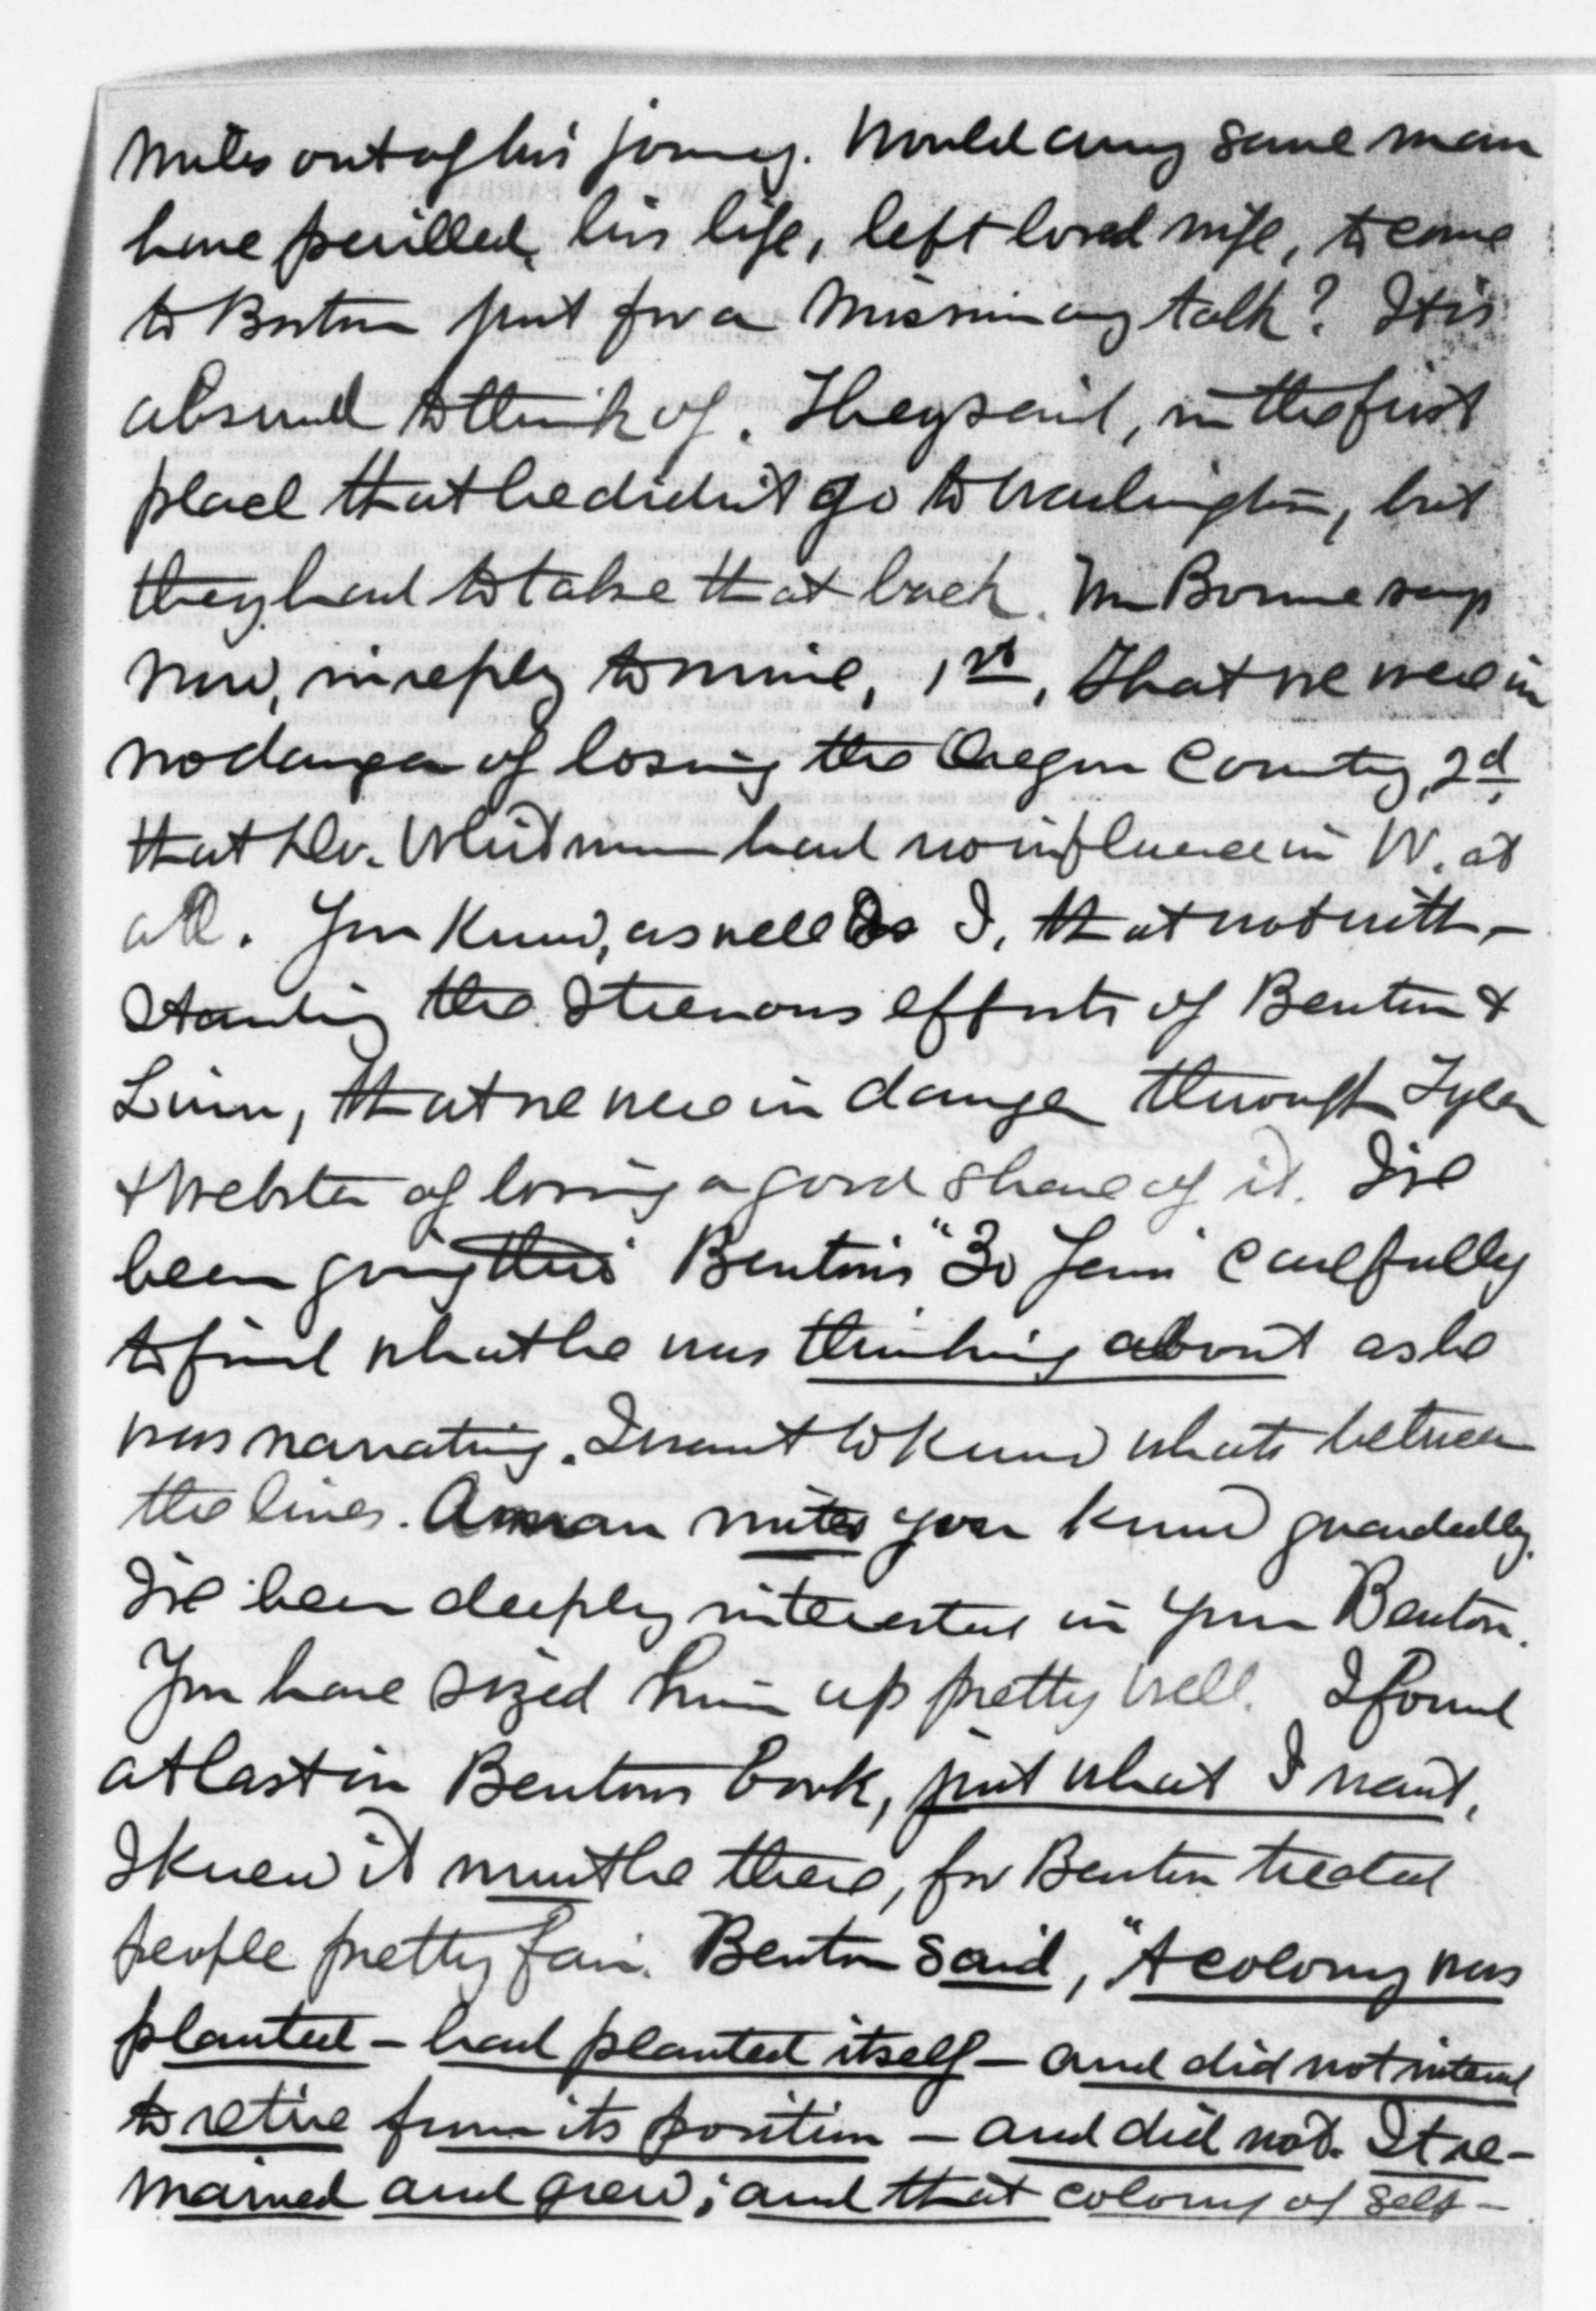 miles out of his journey. Would any sane man
have perilled, his life, left loved wife, to come
to Boston just for a missionary talk? It is
absurd to think of. They said, in the first
place that he didn't go to Washington, but
they had to take that back. Mr Bourne says
now, in reply to mine, 1st, that we were in
no danger of losing the Oregon Country, 2d,
that Dr. Whitman had no influence in W. at
all. You know, as well as I, that notwith-
standing the strenuous efforts of Benton &
Linn, that we were in danger through Tyler
& Webster of losing a good share of it. I've
been going thro' Benton's "30 Years" carefully
to find what he was thinking about as he
was narrating. I want to know whats between
the lines. A man writes you know guardedly.
I've been deeply interested in your Benton.
You have sized him up pretty well. I found
at last in Bentons book, just what I want,
I knew it must be there, for Benton treated
people pretty fair. Benton said, "A colony was
planted – had planted itself – and did not intend
to retire from its position – and did not. It re-
mained and grew; and that colony of self-